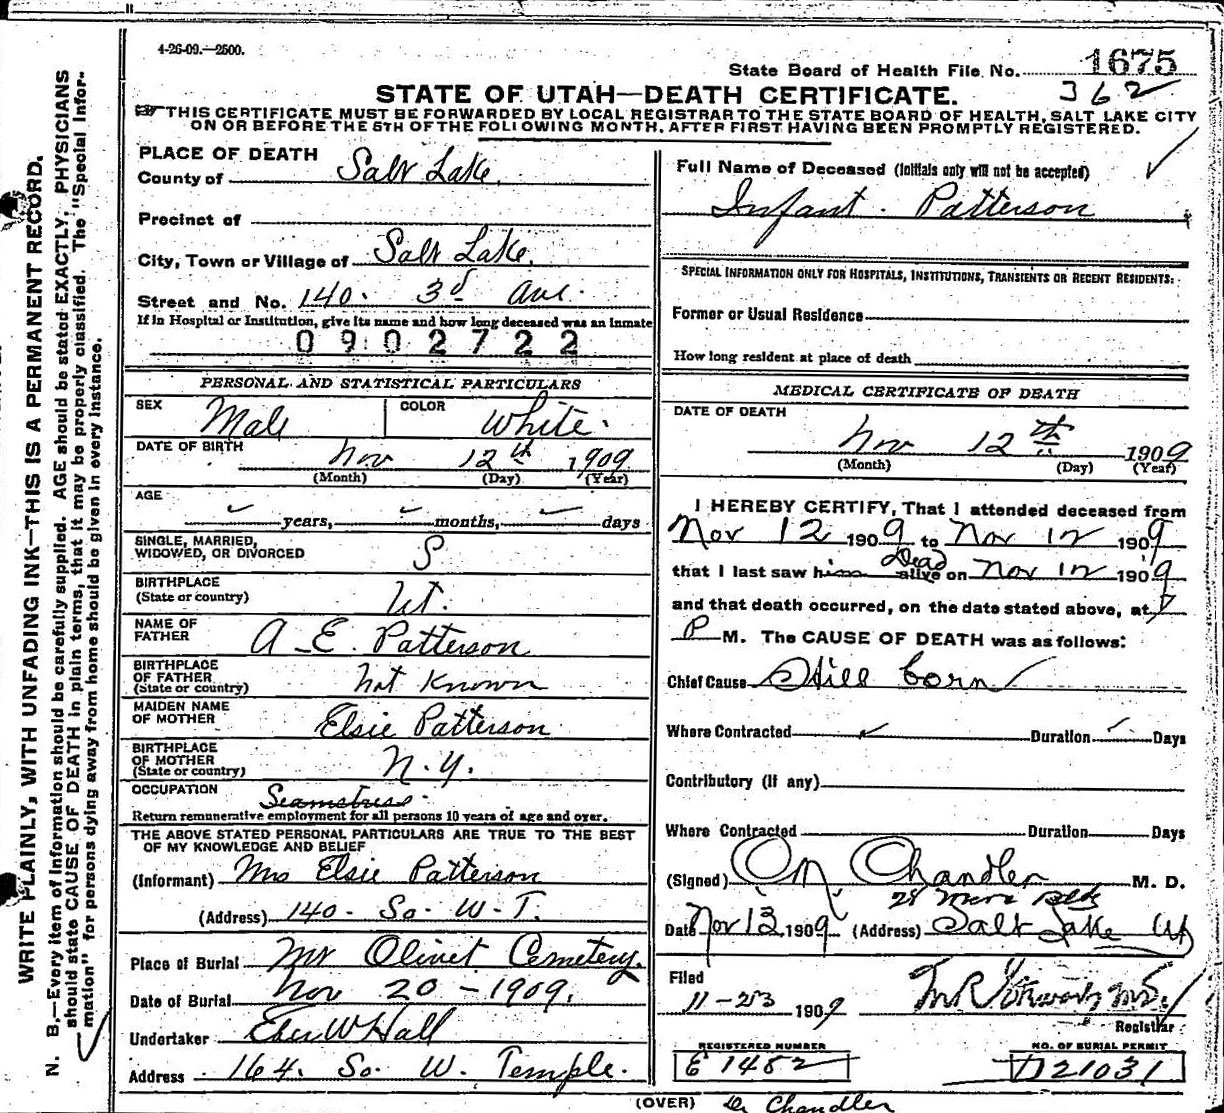 4-26-09.—2500.
State Board of Health File No. 1675
362
STATE OF UTAH—DEATH CERTIFICATE.
THIS CERTIFICATE MUST BE FORWARDED BY LOCAL REGISTRAR TO THE STATE BOARD OF HEALTH, SALT LAKE CITY
ON OR BEFORE THE 5TH OF THE FOLLOWING MONTH, AFTER FIRST HAVING BEEN PROMPTLY REGISTERED.
WRITE PLAINLY, WITH UNFADING INK—THIS IS A PERMANENT RECORD.
N. B.—Every item of information should be carefully supplied. AGE should be stated EXACTLY. PHYSICIANS
should state CAUSE OF DEATH in plain terms, that it may be properly classified. The "Special Infor-
mation" for persons dying away from home should be given in every instance.
PLACE OF DEATH
County of Salt Lake.
Precinct of
City, Town or Village of Salt Lake.
Street and No. 140. 3d Ave.
If in Hospital or Institution, give its name and how long deceased was an inmate
0902722
PERSONAL AND STATISTICAL PARTICULARS
SEX Male COLOR White.
DATE OF BIRTH Nov 12th 1909
(Month) (Day) (Year)
AGE
years, months, days
SINGLE, MARRIED,
WIDOWED, OR DIVORCED S
BIRTHPLACE
(State or country) Ut.
NAME OF
FATHER A E. Patterson
BIRTHPLACE
OF FATHER
(State or country) Not Known
MAIDEN NAME
OF MOTHER Elsie Patterson
BIRTHPLACE
OF MOTHER
(State or country) N.Y.
OCCUPATION Seamstress.
Return remunerative employment for all persons 10 years of age and over.
THE ABOVE STATED PERSONAL PARTICULARS ARE TRUE TO THE BEST
OF MY KNOWLEDGE AND BELIEF
(Informant) Mrs Elsie Patterson
(Address) 140. So. W. T.
Place of Burial Mt Olivet Cemetery.
Date of Burial Nov 20 - 1909.
Undertaker Eber W Hall
Address 164. So. W. Temple.
Full Name of Deceased (Initials only will not be accepted)
Infant. Patterson
SPECIAL INFORMATION ONLY FOR HOSPITALS, INSTITUTIONS, TRANSIENTS OR RECENT RESIDENTS:
Former or Usual Residence
How long resident at place of death
MEDICAL CERTIFICATE OF DEATH
DATE OF DEATH
Nov 12th 1909
(Month) (Day) (Year)
I HEREBY CERTIFY, That I attended deceased from
Nov 12 1909 to Nov 12 1909
Dead
that I last saw him alive on Nov 12 1909
and that death occurred, on the date stated above, at 7
P M. The CAUSE OF DEATH was as follows:
Chief Cause Still born
Where Contracted Duration Days
Contributory (If any)
Where Contracted Duration Days
(Signed) O M. Chandler M. D.
28
Date Nov 13, 1909 (Address) Salt Lake Ut
Filed
11-23 1909
Registrar
REGISTERED NUMBER NO. OF BURIAL PERMIT
E 1452 D21031
(OVER) Dr Chandler